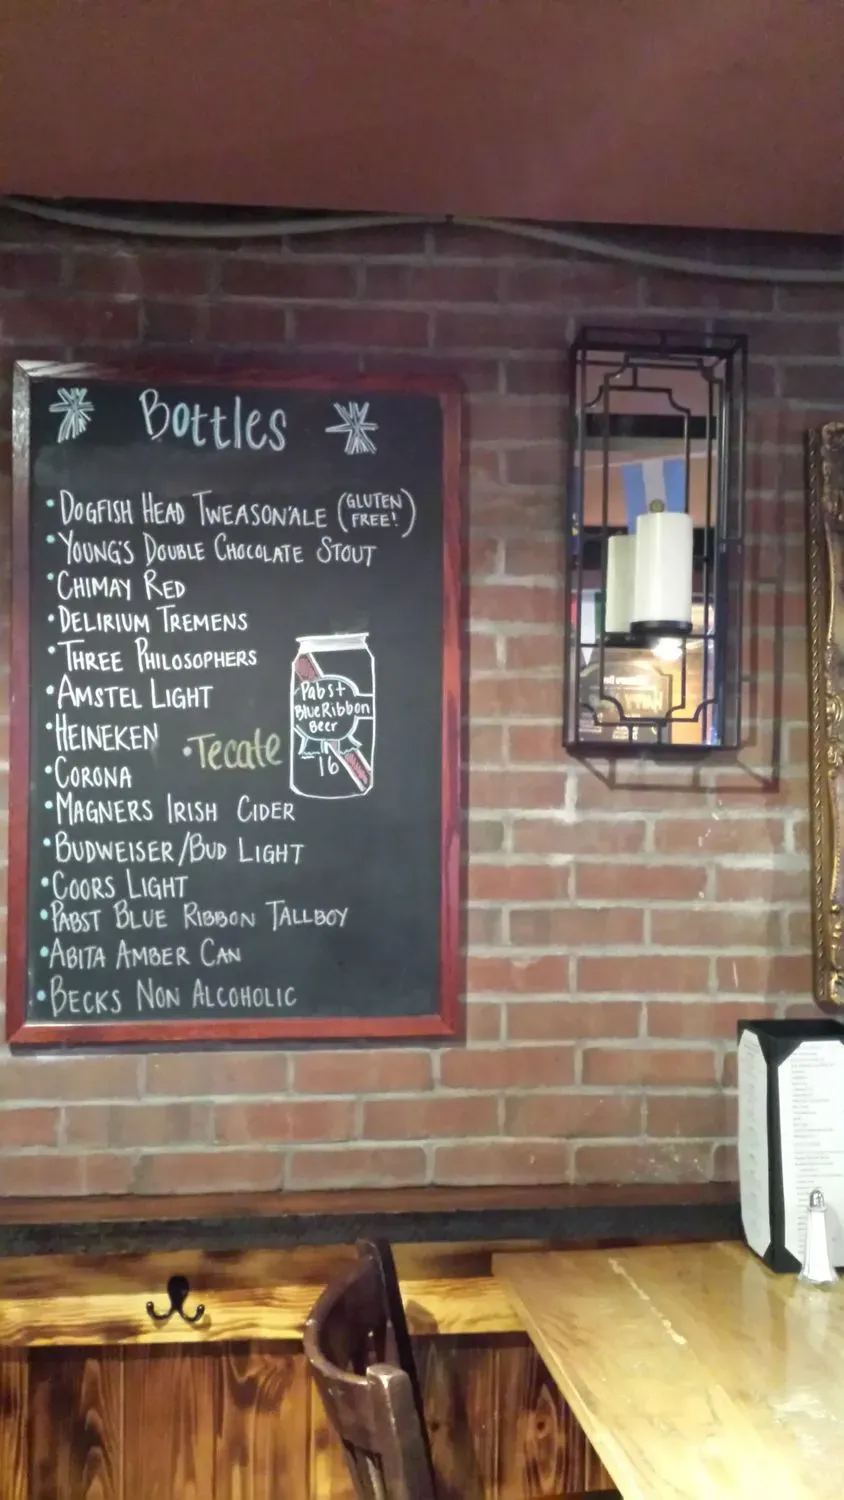 Bottles
• DOGFISH HEAD TWEASON'ALE (GLUTEN FREE!)
• YOUNG'S DOUBLE CHOCOLATE STOUT
• CHIMAY RED
• DELIRIUM TREMENS
• THREE PHILOSOPHERS
• AMSTEL LIGHT
• HEINEKEN
• Tecate
• CORONA
• MAGNERS IRISH CIDER
• BUDWEISER/BUD LIGHT
• COORS LIGHT
• PABST BLUE RIBBON TALLBOY
• ABITA AMBER CAN
• BECKS NON ALCOHOLIC
Pabst
Blue Ribbon
Beer
16